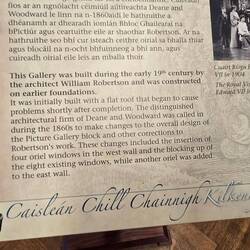 Woodward le linn na n-1860idí le hathruithe a
dhéanamh ar dhearadh iomlán Bhloc Ghailearaí na
bPictiúr agus ceartuithe eile ar shaothar Robertson. Ar na
hathruithe seo bhí cur isteach ceithre oirial sa bhalla thiar
agus blocáil na n-ocht bhfuinneog a bhí ann, agus
cuireadh oirial eile leis an mballa thoir.
This Gallery was built during the early 19th century by
the architect William Robertson and was constructed
on earlier foundations.
It was initially built with a flat roof that began to cause
problems shortly after completion. The distinguished
architectural firm of Deane and Woodward was called in
during the 1860s to make changes to the overall design of
the Picture Gallery block and other corrections to
Robertson's work. These changes included the insertion of
four oriel windows in the west wall and the blocking up of
the eight existing windows, while another oriel was added
to the east wall.
Cuairt Ríoga
VII in 1904
The Royal Vis
Edward VII
Caisleán Chill Chainnigh Kilken